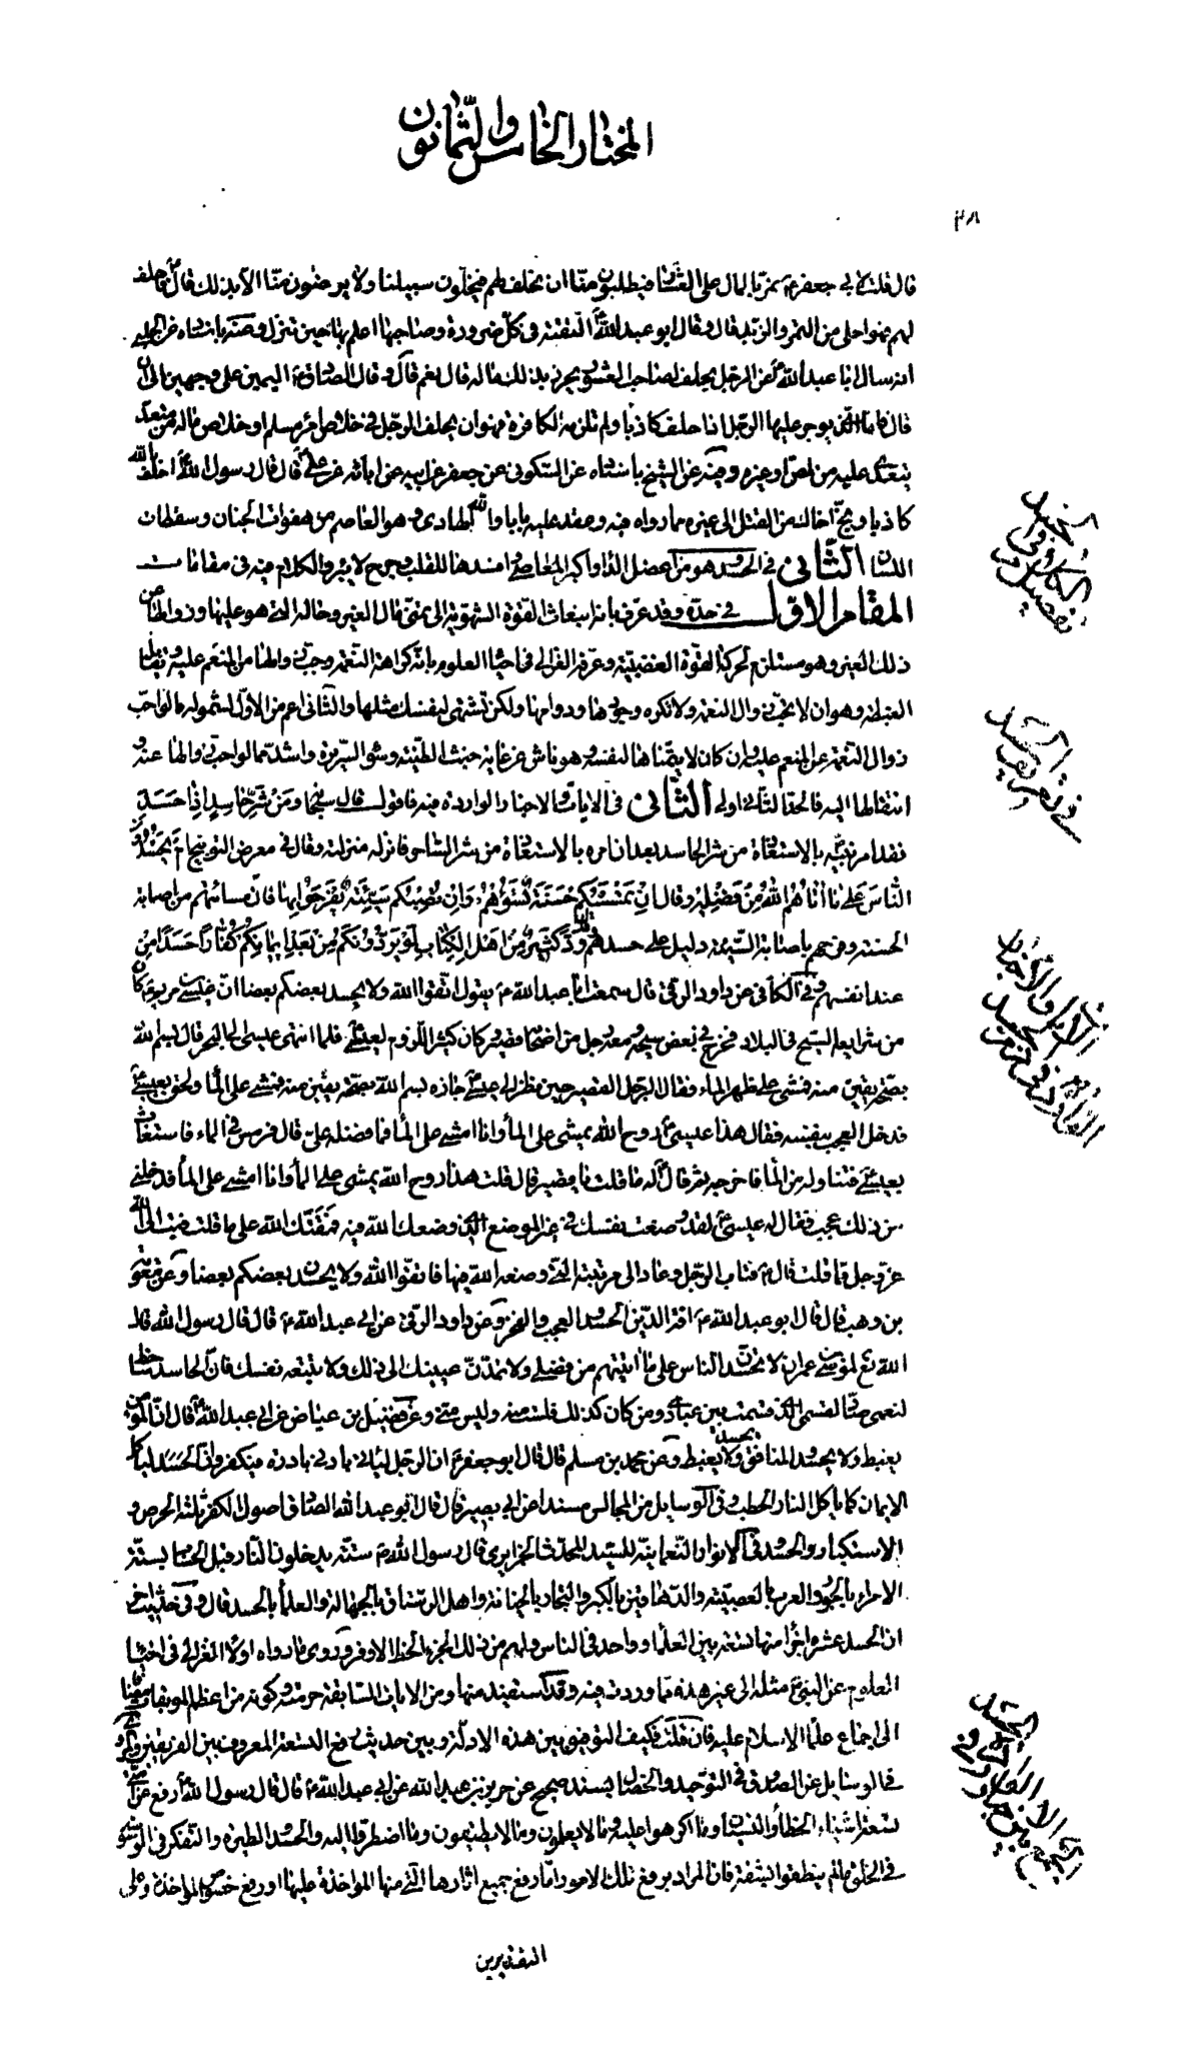 المختار الخامس والثمانون
٣٨
قال قلت لابي جعفر ع نمر بالمال على العشار فيطلبون منا ان نحلف لهم فيخلون سبيلنا ولا يرضون منا الا بذلك قال ع فاحلف
لهم فهو احلى من التمر والزبد قال وقال ابو عبد الله ع التقية في كل ضرورة وصاحبها اعلم بها حين تنزل وعنه باسناده عن الحلبي
انه سال ابا عبد الله ع عن الرجل يحلف لصاحب العشور يحرز بذلك ماله قال نعم قال وقال الصادق ع اليمين على وجهين الى ان
قال فاما التي يوجر عليها الرجل اذا حلف كاذبا ولم تلزمه الكفارة فهو ان يحلف الرجل في خلاص امرء مسلم او خلاص ماله من متعد
يتعدى عليه من لص او غيره وفيه عن الشيخ باسناده عن السكوني عن جعفر عن ابيه عن ابائه عن علي ع قال قال رسول الله ص احلف بالله
كاذبا ونج اخاك من القتل الى غيره مما رواه فيه وعقد عليه بابا والله الهادي وهو العاصم من هفوات الجنان وسقطات
اللسان الثاني في الحسد وهو من اعضل الداء واكبر المعاصي وافسدها للقلب وجرح لا يبرء والكلام فيه في مقامات
المقام الاول في حده وقد عرف بانه انبعاث القوة الشهوية الى تمني مال الغير وحاله التي هو عليها وزوالها عن
ذلك الغير وهو مستلزم لحركة القوة الغضبية وعرفه الغزالي في احياء العلوم بانه كراهة النعمة وحب زوالها من المنعم عليه ويقابله
الغبطة وهو ان لا تحب زوال النعمة ولا تكره وجودها ودوامها ولكن تشتهي لنفسك مثلها والثاني اعم من الاول لشموله مالو احب
زوال النعمة عن المنعم عليه وان كان لا يتمناها لنفسه وهو ناش عن غاية خبث الطينة وسوء السريرة واشد مما لو احب زوالها عنه و
انتقالها اليه فالحد الثاني اولى الثاني في الايات والاخبار الواردة فيه فاقول قال سبحانه ومن شر حاسد اذا حسد
فقد امر نبيه بالاستعاذة من شر الحاسد بعد ان امره بالاستعاذة من شر الساحر فانزله منزلته وقال في معرض التوبيخ ام يحسدون
الناس على ما اتاهم الله من فضله وقال ان تمسسكم حسنة تسؤهم وان تصبكم سيئة يفرحوا بها فان مسائتهم من اصابة
الحسنة وفرحهم باصابة السيئة دليل على حسدهم وقال ود كثير من اهل الكتاب لو يردونكم من بعد ايمانكم كفارا حسدا من
عند انفسهم وفي الكافي عن داود الرقي قال سمعت ابا عبد الله ع يقول اتقوا الله ولا يحسد بعضكم بعضا ان عيسى بن مريم ع كان
من شرايعه السيح في البلاد فخرج في بعض سيحه ومعه رجل من اصحابه قصير وكان كثير اللزوم لعيسى ع فلما انتهى عيسى الى البحر قال بسم الله
بصحة يقين منه فمشى على ظهر الماء فقال الرجل القصير حين نظر الى عيسى ع جازه بسم الله بصحة يقين منه فمشى على الماء ولحق بعيسى ع
فدخل العجب بنفسه فقال هذا عيسى ع روح الله يمشي على الماء وانا امشي على الماء فما فضله علي قال فرمس في الماء فاستغاث
بعيسى ع فتناوله من الماء فاخرجه ثم قال له ما قلت يا قصير قال قلت هذا روح الله يمشي على الماء وانا امشي على الماء فدخلني
من ذلك عجب فقال له عيسى ع لقد وضعت نفسك في غير الموضع الذي وضعك الله فيه فمقتك الله على ما قلت فتب الى الله
عز وجل مما قلت قال ع فتاب الرجل وعاد الى مرتبته التي وضعه الله فيها فاتقوا الله ولا يحسدن بعضكم بعضا وعن معوية
بن وهب قال قال ابو عبد الله ع افة الدين الحسد والعجب والفخر وعن داود الرقي عن ابي عبد الله ع قال قال رسول الله قال
الله تع لموسى بن عمران لا تحسدن الناس على ما اتيتهم من فضلي ولا تمدن عينيك الى ذلك ولا تتبعه نفسك فان الحاسد ساخط
لنعمي صاد لقسمي الذي قسمت بين عبادي ومن كان كذلك فلست منه وليس مني وعن فضيل بن عياض عن ابي عبد الله ع قال ان المؤمن
يغبط ولا يحسد والمنافق يحسد ولا يغبط وعن محمد بن مسلم قال قال ابو جعفر ع ان الرجل لياتي بادنى بادرة فيكفر وان الحسد لياكل
الايمان كما ياكل النار الحطب وفي الوسايل من المجالس مسندا عن ابي بصير قال قال ابو عبد الله الصادق اصول الكفر ثلثة الحرص و
الاستكبار والحسد وفي الانوار النعمانية للسيد المحدث الجزايري قال رسول الله ص ستة يدخلون النار قبل الحساب بستة
الامراء بالجور والعرب بالعصبية والدهاقين بالكبر والتجار بالخيانة واهل الرستاق بالجهالة والعلماء بالحسد قال وفي حديث اخر
ان الحسد عشرة اجزاء منها تسعة بين العلماء وواحد في الناس ولهم من ذلك الجزء الحظ الاوفر وروى ما رواه اولا الغزالي في احياء
العلوم عن النبي ص مثله الى غير هذه مما وردت فيه وقد استفيد منها ومن الايات السابقة حرمته وكونه من اعظم الموبقات مضافا
الى اجماع علماء الاسلام عليه فان قلت فكيف التوفيق بين هذه الادلة وبين حديث رفع التسعة المعروف بين الفريقين والمروي
في الوسايل عن الصدوق في التوحيد والخصال بسند صحيح عن حريز بن عبد الله عن ابي عبد الله ع قال قال رسول الله ص رفع عن امتي
تسعة اشياء الخطأ والنسيان وما اكرهوا عليه وما لا يعلمون وما لا يطيقون وما اضطروا اليه والحسد والطيرة والتفكر في الوسوسة
في الخلق مالم ينطقوا بشفة فان المراد برفع تلك الامور اما رفع جميع اثارها التي منها المؤاخذة عليها او رفع خصوص المؤاخذة وعلى
التقديرين
في تعريف الحسد
الايات والاخبار
الواردة في ذم الحسد